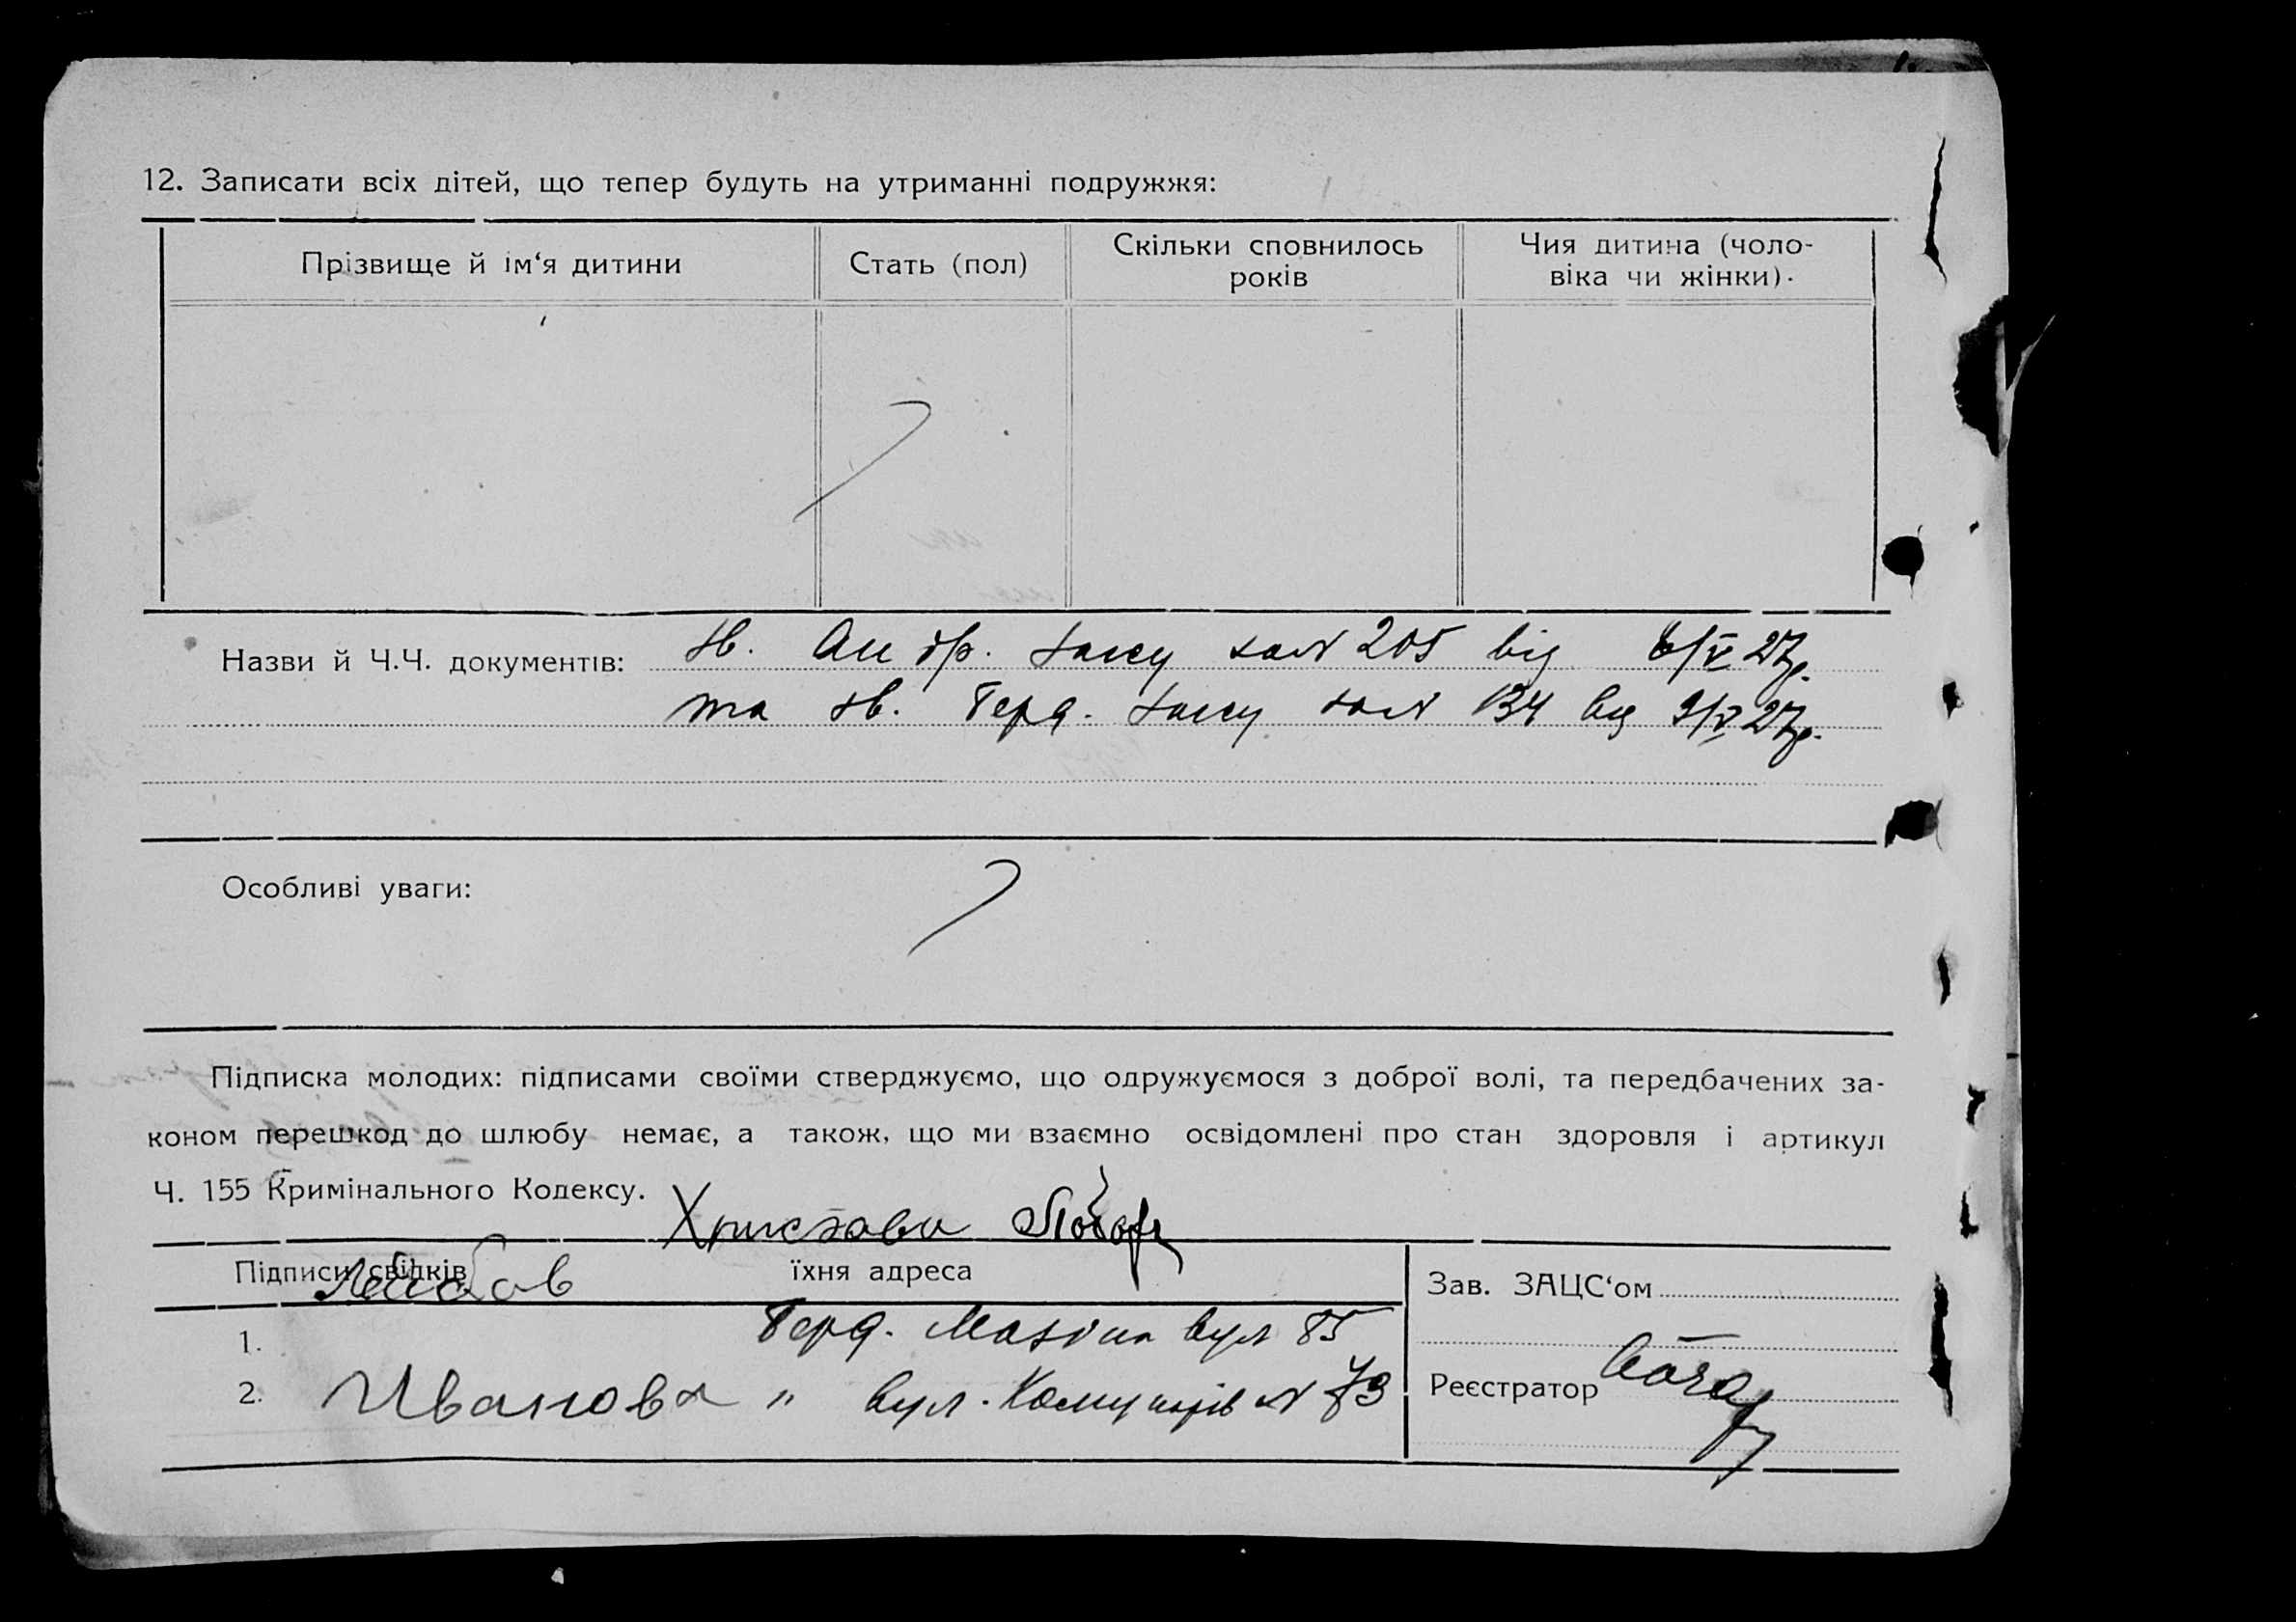 12. Записати всіх дітей, що тепер будуть на утриманні подружжя:
Прізвище й ім‘я дитини
Стать (пол)
Скільки сповнилось
років
Чия дитина (чоло-
віка чи жінки).
Назви й Ч.Ч. документів: 205 від 6/V 27р.
та Герд. 134 від 9/V 27р.
Особливі уваги:
Підписка молодих: підписами своїми стверджуємо, що одружуємося з доброї волі, та передбачених за-
коном перешкод до шлюбу немає, а також, що ми взаємно освідомлені про стан здоровля і артикул
Ч. 155 Кримінального Кодексу.
Підписи свідків
їхня адреса
Зав. ЗАЦС‘ом
1. Герд. вул 85
2. Иванова " вул. Комунарів № 73
Реєстратор